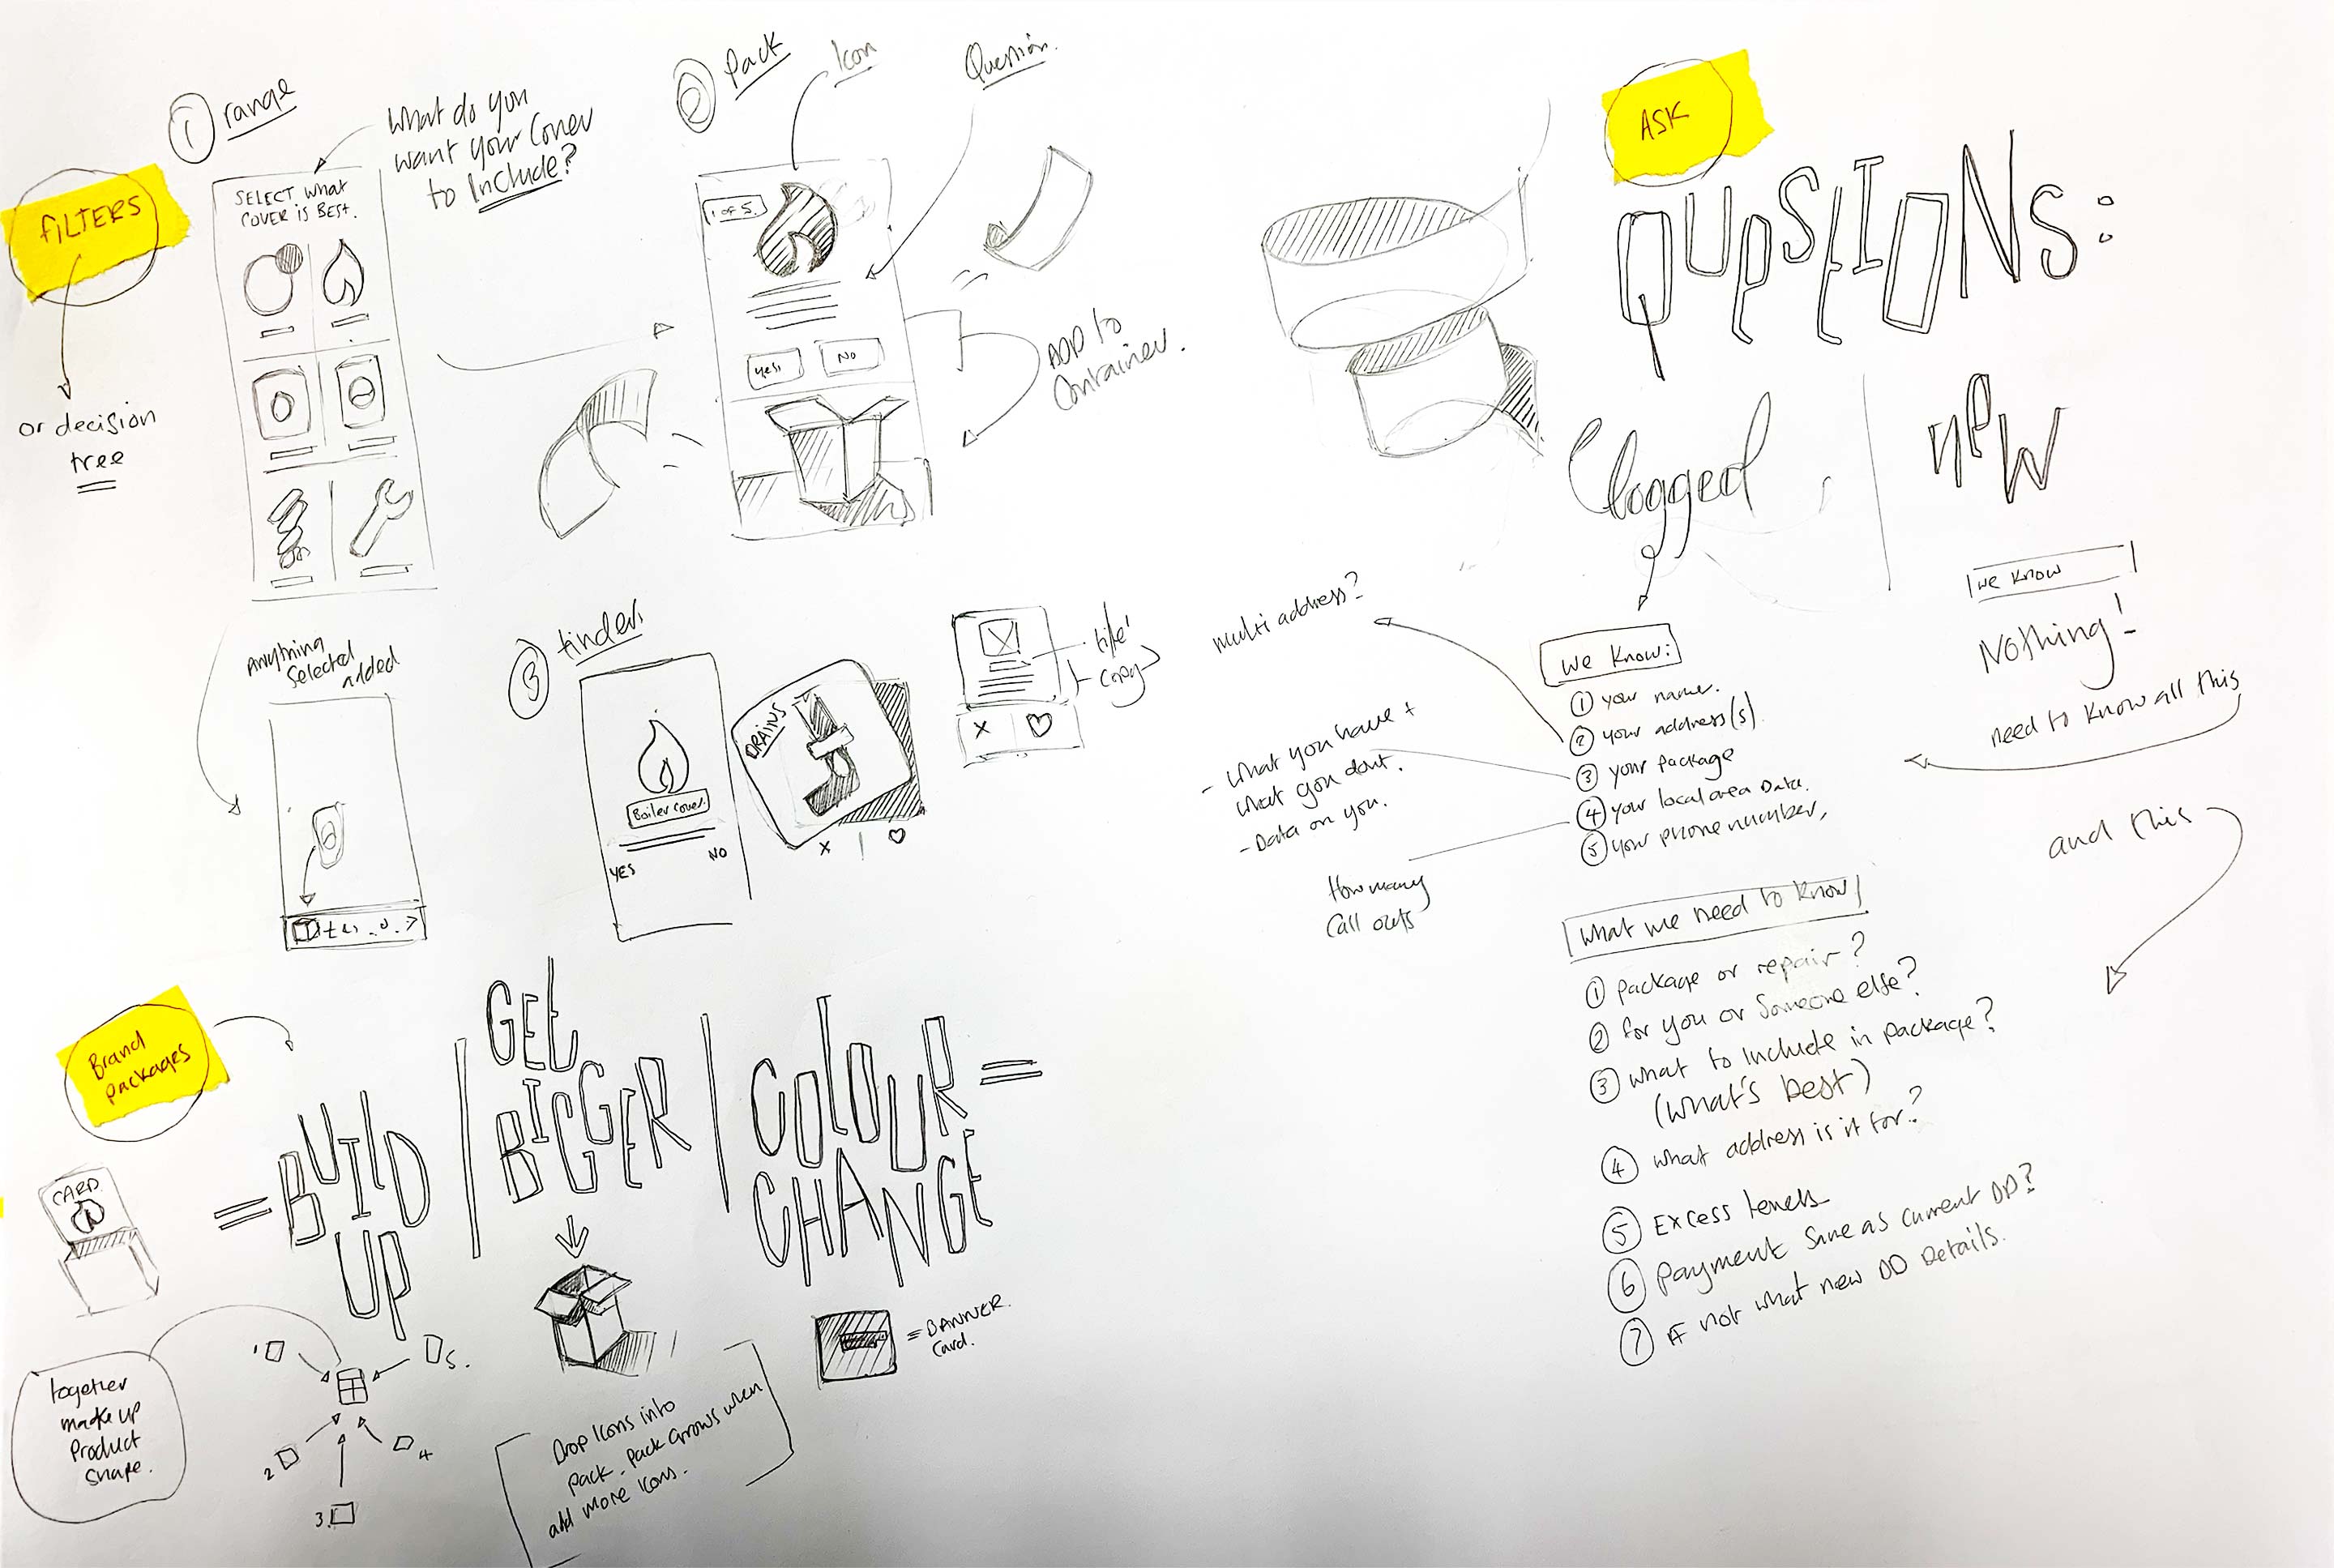 FILTERS
or decision
tree
① range
What do you
want your Cover
to Include?
SELECT what
COVER is BEST.
Anything
Selected
added
② Pack
Icon
Question.
1 of 5.
yes
No
ADD to
Container.
③ tinder
Boiler Cover.
YES
NO
DRAINS
x
x
title
Copy
Brand
packages
= BUILD
UP
GET
BIGGER
COLOUR =
CHANGE
CARD
together
make up
Product
Shape.
1
2
3.
4
5.
Drop Icons into
pack. pack Grows when
add more Icons.
= BANNER
Card.
ASK
QUESTIONS:
logged
new
we know:
① your name.
② your address(s).
③ your package
④ your local area Data.
⑤ your phone number,
multi address?
- What you have +
what you dont.
- Data on you.
How many
Call outs
we know
Nothing!
need to know all this
and this
What we need to know
① package or repair?
② for you or Someone else?
③ what to Include in package?
(what's best)
④ what address is it for?
⑤ Excess levels
⑥ payment Same as current DD?
⑦ If not what new DD Details.